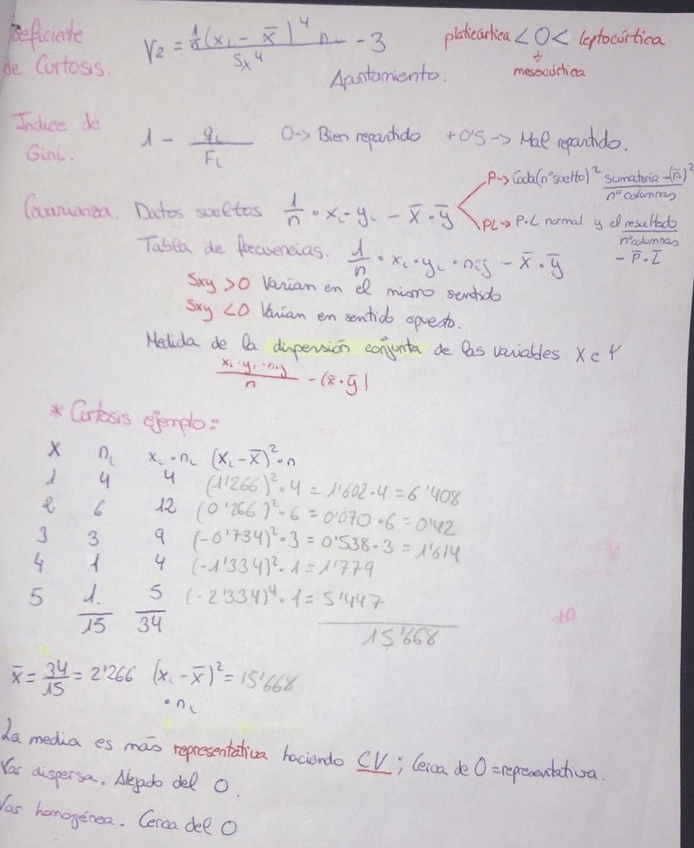 Coeficiente de Curtosis. γ2 = 1/n (xi - x̄)^4 ni / Sx^4 - 3
platicúrtica < 0 < leptocúrtica
↓
mesocúrtica
Apuntamiento.
Indice de Gini. 1 - qi / Fi 0 -> Bien repartido +0'5 -> Mal repartido.
Covarianza. Datos sueltos 1/n · xi · yi - x̄ · ȳ
P -> Cada (nº suelto)^2 sumatoria / nº columnas - (P̄)^2
PL -> P·L normal y el resultado / nº columnas - P̄ · L̄
Tabla de frecuencias. 1/n · xi · yi · nij - x̄ · ȳ
Sxy > 0 Varían en el mismo sentido
Sxy < 0 Varían en sentido opuesto.
Medida de la dispersión conjunta de las variables X e Y
xi · yi · nij / n - (x̄ · ȳ)
* Curtosis ejemplo:
X ni xi · ni (xi - x̄)^2 · n
1 4 4 (1'266)^2 · 4 = 1'602 · 4 = 6'408
2 6 12 (0'266)^2 · 6 = 0'070 · 6 = 0'42
3 3 9 (-0'734)^2 · 3 = 0'538 · 3 = 1'614
4 1 4 (-1'334)^2 · 1 = 1'779
5 1 5 (-2'334)^4 · 1 = 5'447
15 34 15'668
x̄ = 34/15 = 2'266 (xi - x̄)^2 · ni = 15'668
La media es más representativa haciendo CV; Cerca de 0 = representativa.
Var dispersa. Alejado del 0.
Var homogénea. Cerca del 0